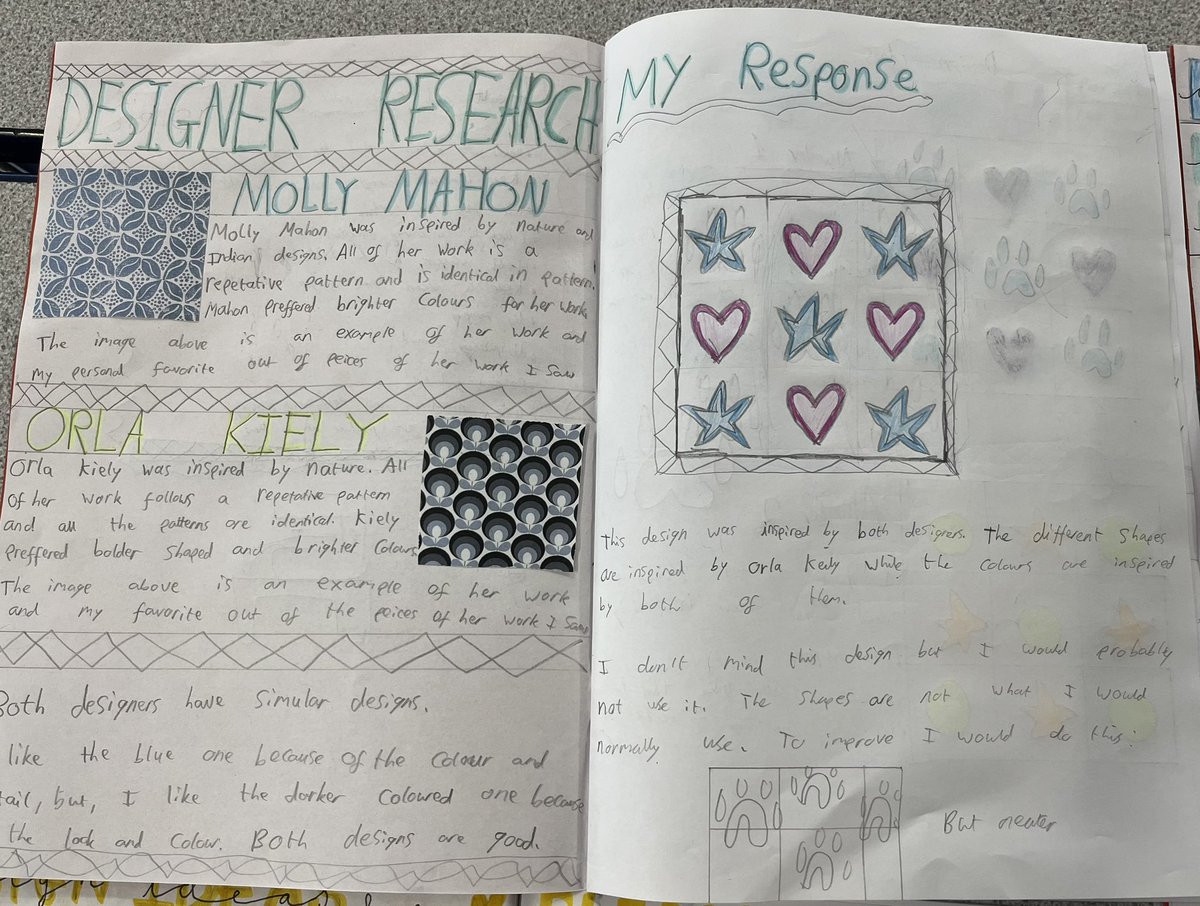 DESIGNER RESEARCH
MOLLY MAHON
Molly Mahon was inspired by Nature and
Indian designs. All of her work is a
repetative pattern and is identical in pattern.
Mahon preffered brighter colours for her work
The image above is an example of her work and
my personal favorite out of peices of her work I saw
ORLA KIELY
Orla Kiely was inspired by nature. All
of her work follows a repetative pattern
and all the patterns are identical. Kiely
preffered bolder shaped and brighter colours
The image above is an example of her work
and my favorite out of the peices of her work I saw
Both designers have simular designs.
like the blue one because of the colour and
tail, but, I like the darker coloured one because
the look and colour. Both designs are good.
MY Response
This design was inspired by both designers. The different shapes
are inspired by Orla Keily while the colours are inspired
by both of them.
I don't mind this design but I would probably
not use it. The shapes are not what I would
normally use. To improve I would do this:
But neater
ideas